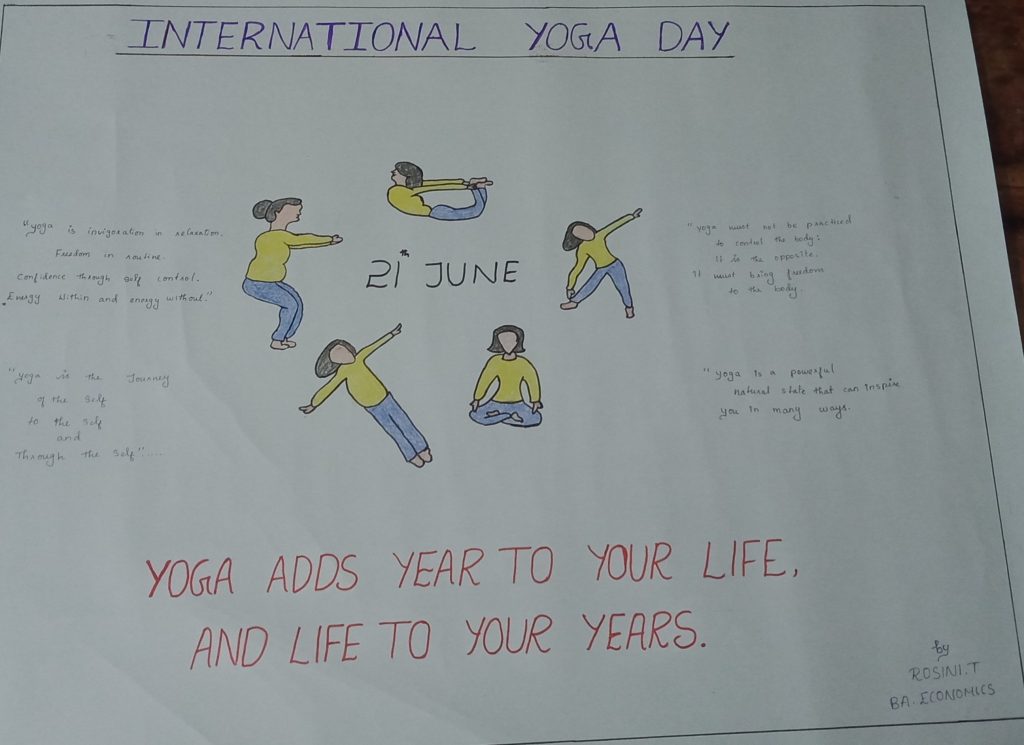 INTERNATIONAL YOGA DAY
"Yoga is invigoration in relaxation.
Freedom in routine.
Confidence through self control.
Energy within and energy without."
"Yoga is the Journey
of the Self
to the Self
and
Through the Self".....
21th JUNE
"Yoga must not be practiced
to control the body:
It is the opposite.
It must bring freedom
to the body.
"Yoga is a powerful
natural state that can inspire
you in many ways.
YOGA ADDS YEAR TO YOUR LIFE,
AND LIFE TO YOUR YEARS.
by
ROSINI.T
BA.ECONOMICS